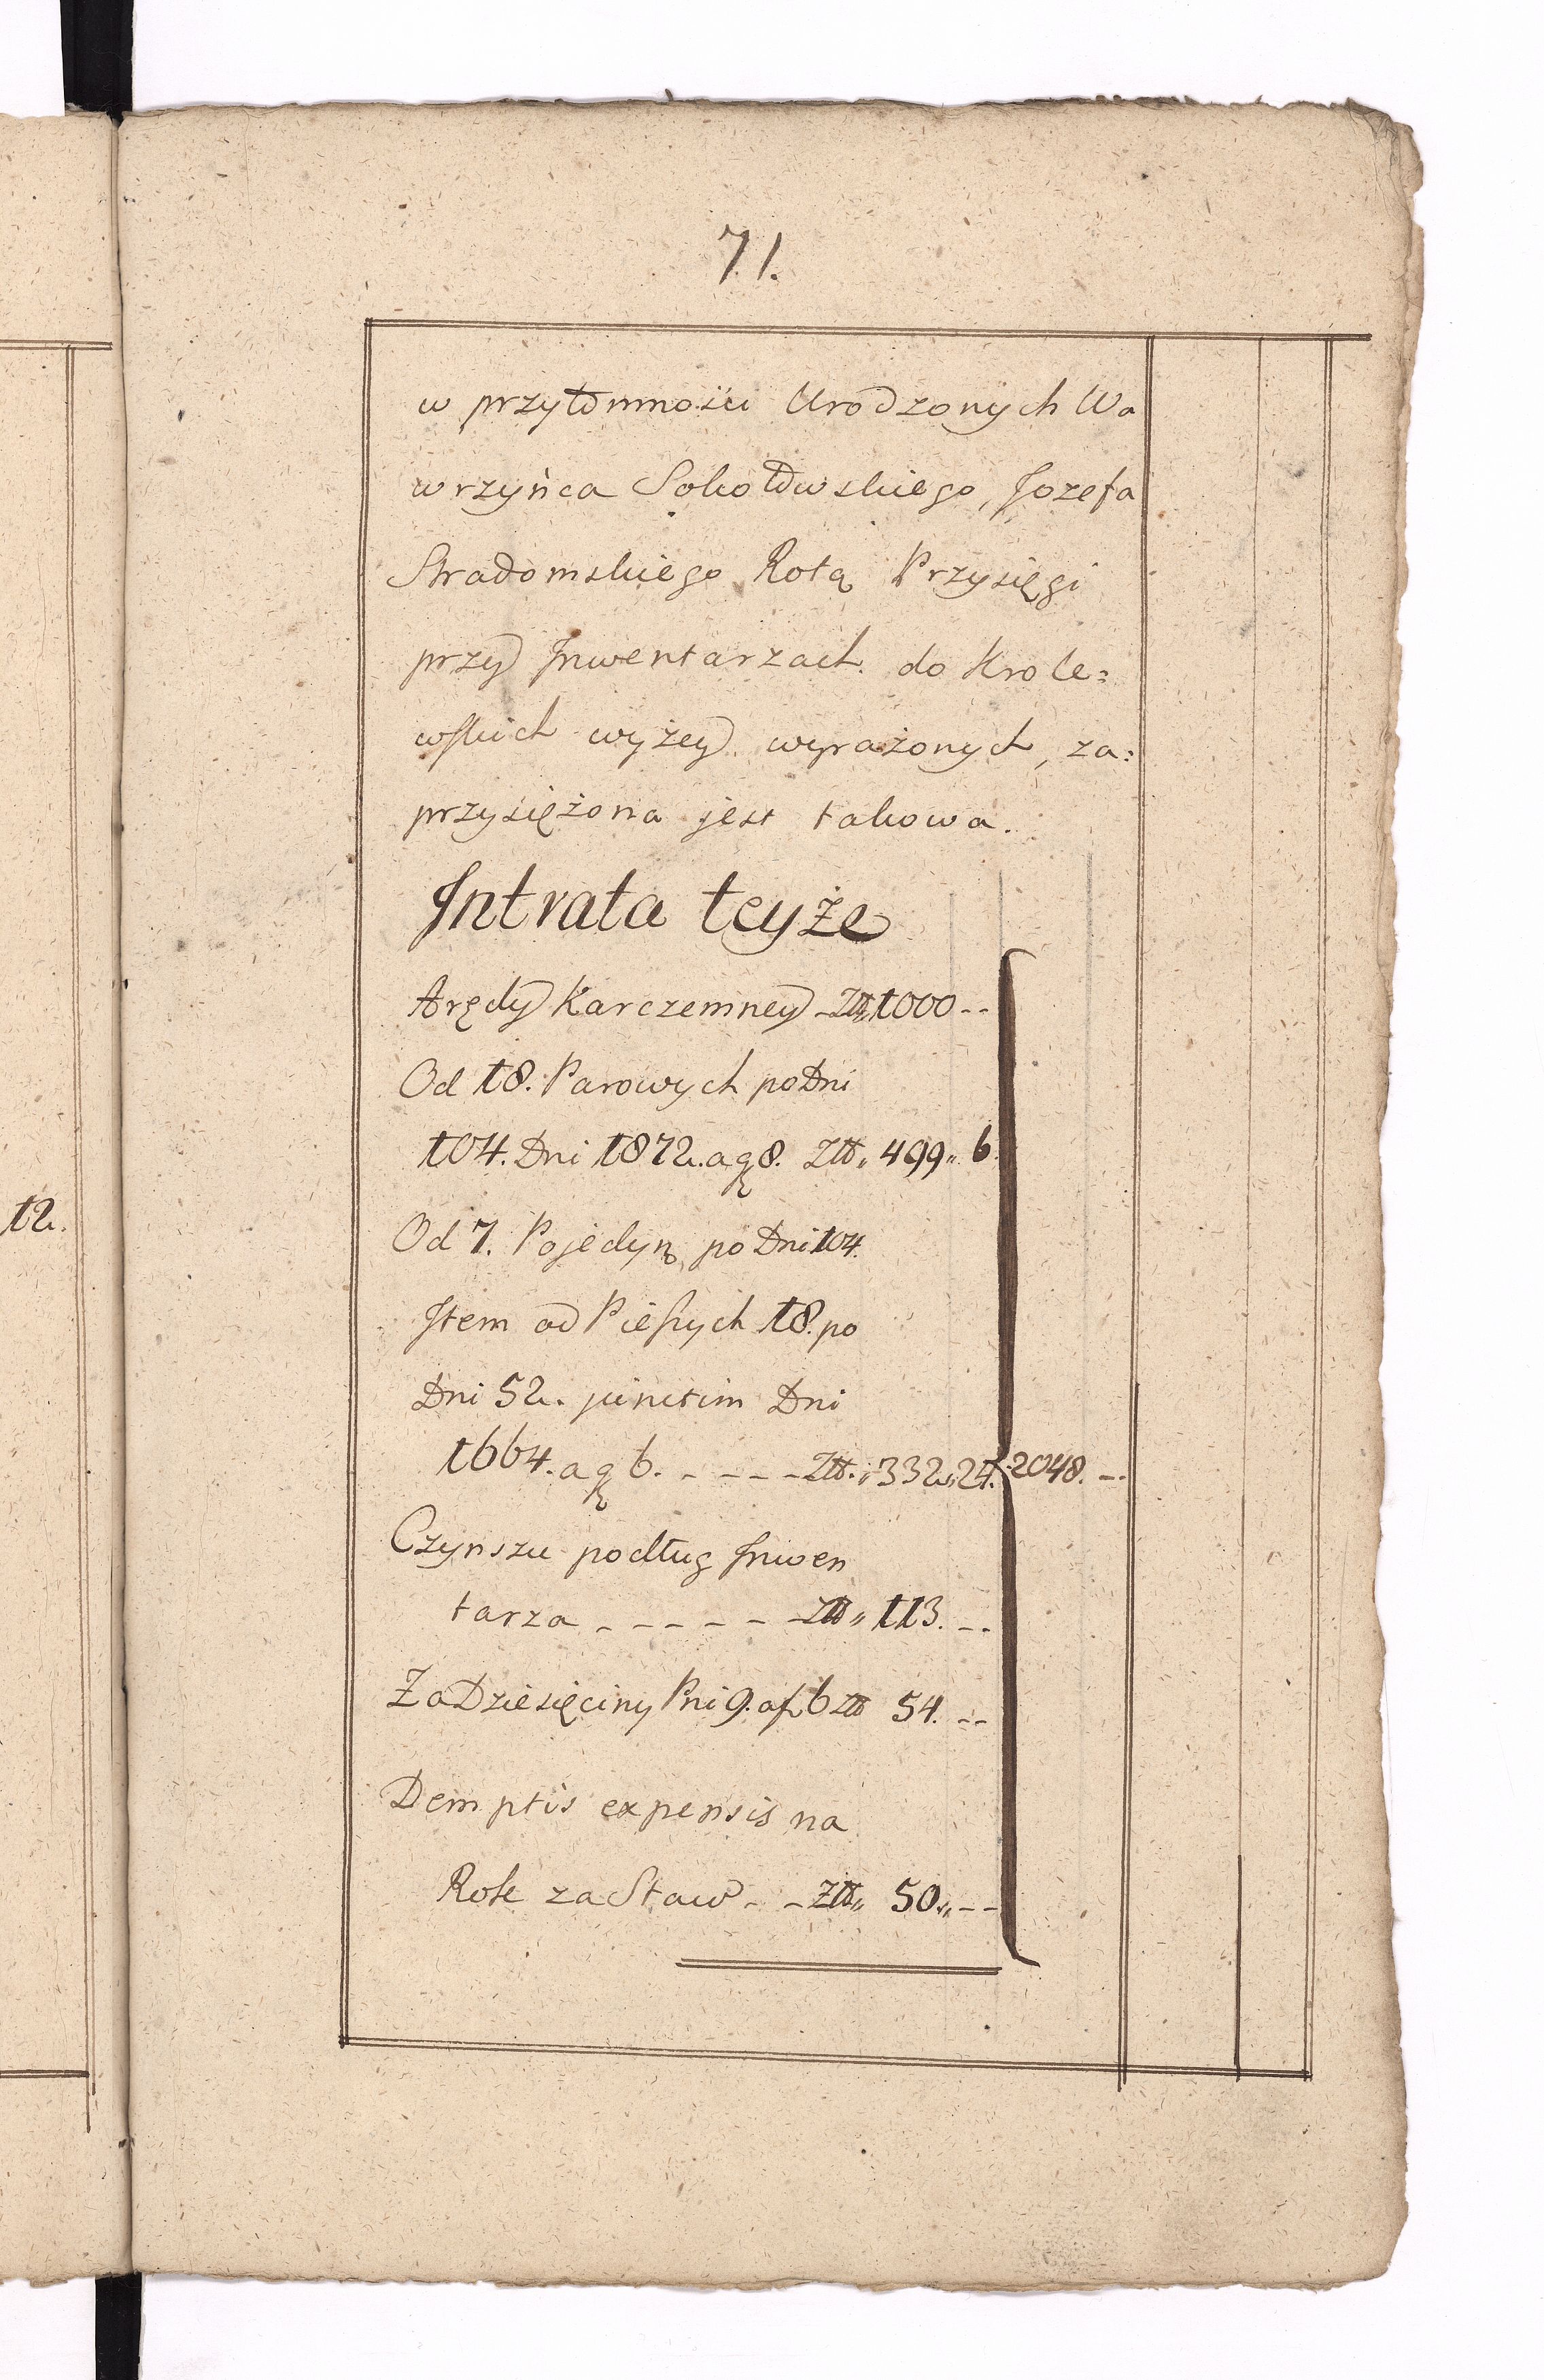 71.
w przytomności Urodzonych Wa
wrzyńca Sokołowskiego, Jozefa
Stradomskiego Rotą Przysięgi
przy Inwentarzach do Krole=
wskich wyżey wyrażonych, za=
przysiężona jest takowa.
Intrata teyże
Arędy Karczemney - Zł„ 1000 --
Od 18. Parowych po Dni
104. Dni 1872. a g 8. Zł„ 499„ 6.
Od 7. Pojedyn, po Dni 104.
Item od Pieszych 18. po
Dni 52. junctim Dni
1664. a g 6. - - - - Zł.„ 332„ 24. 2048. --
Czynszu podług Inwen
tarza - - - - - - Zł„ 113. --
Za Dziesięciny Pni 9. af 6 zł 54. --
Demptis expensis na
Rolę za Staw - - Zł„ 50„ --
12.